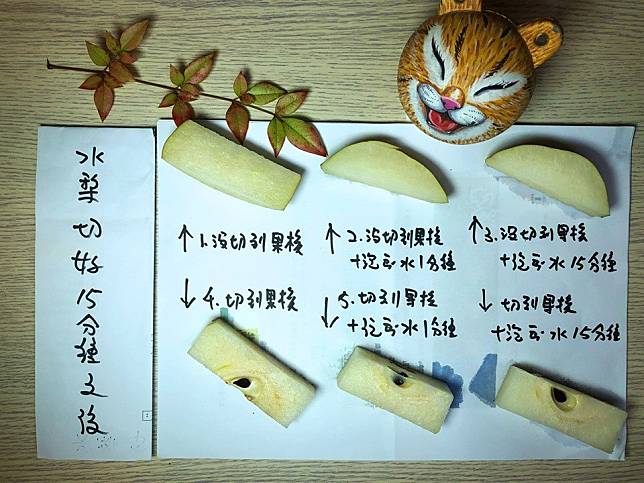 水梨切好15分鐘之後
↑1.沒切到果核
↑2.沒切到果核
+汽水1分鐘
↑3.沒切到果核
+汽水15分鐘
↓4.切到果核
↓5.切到果核
+汽水1分鐘
↓切到果核
+汽水15分鐘